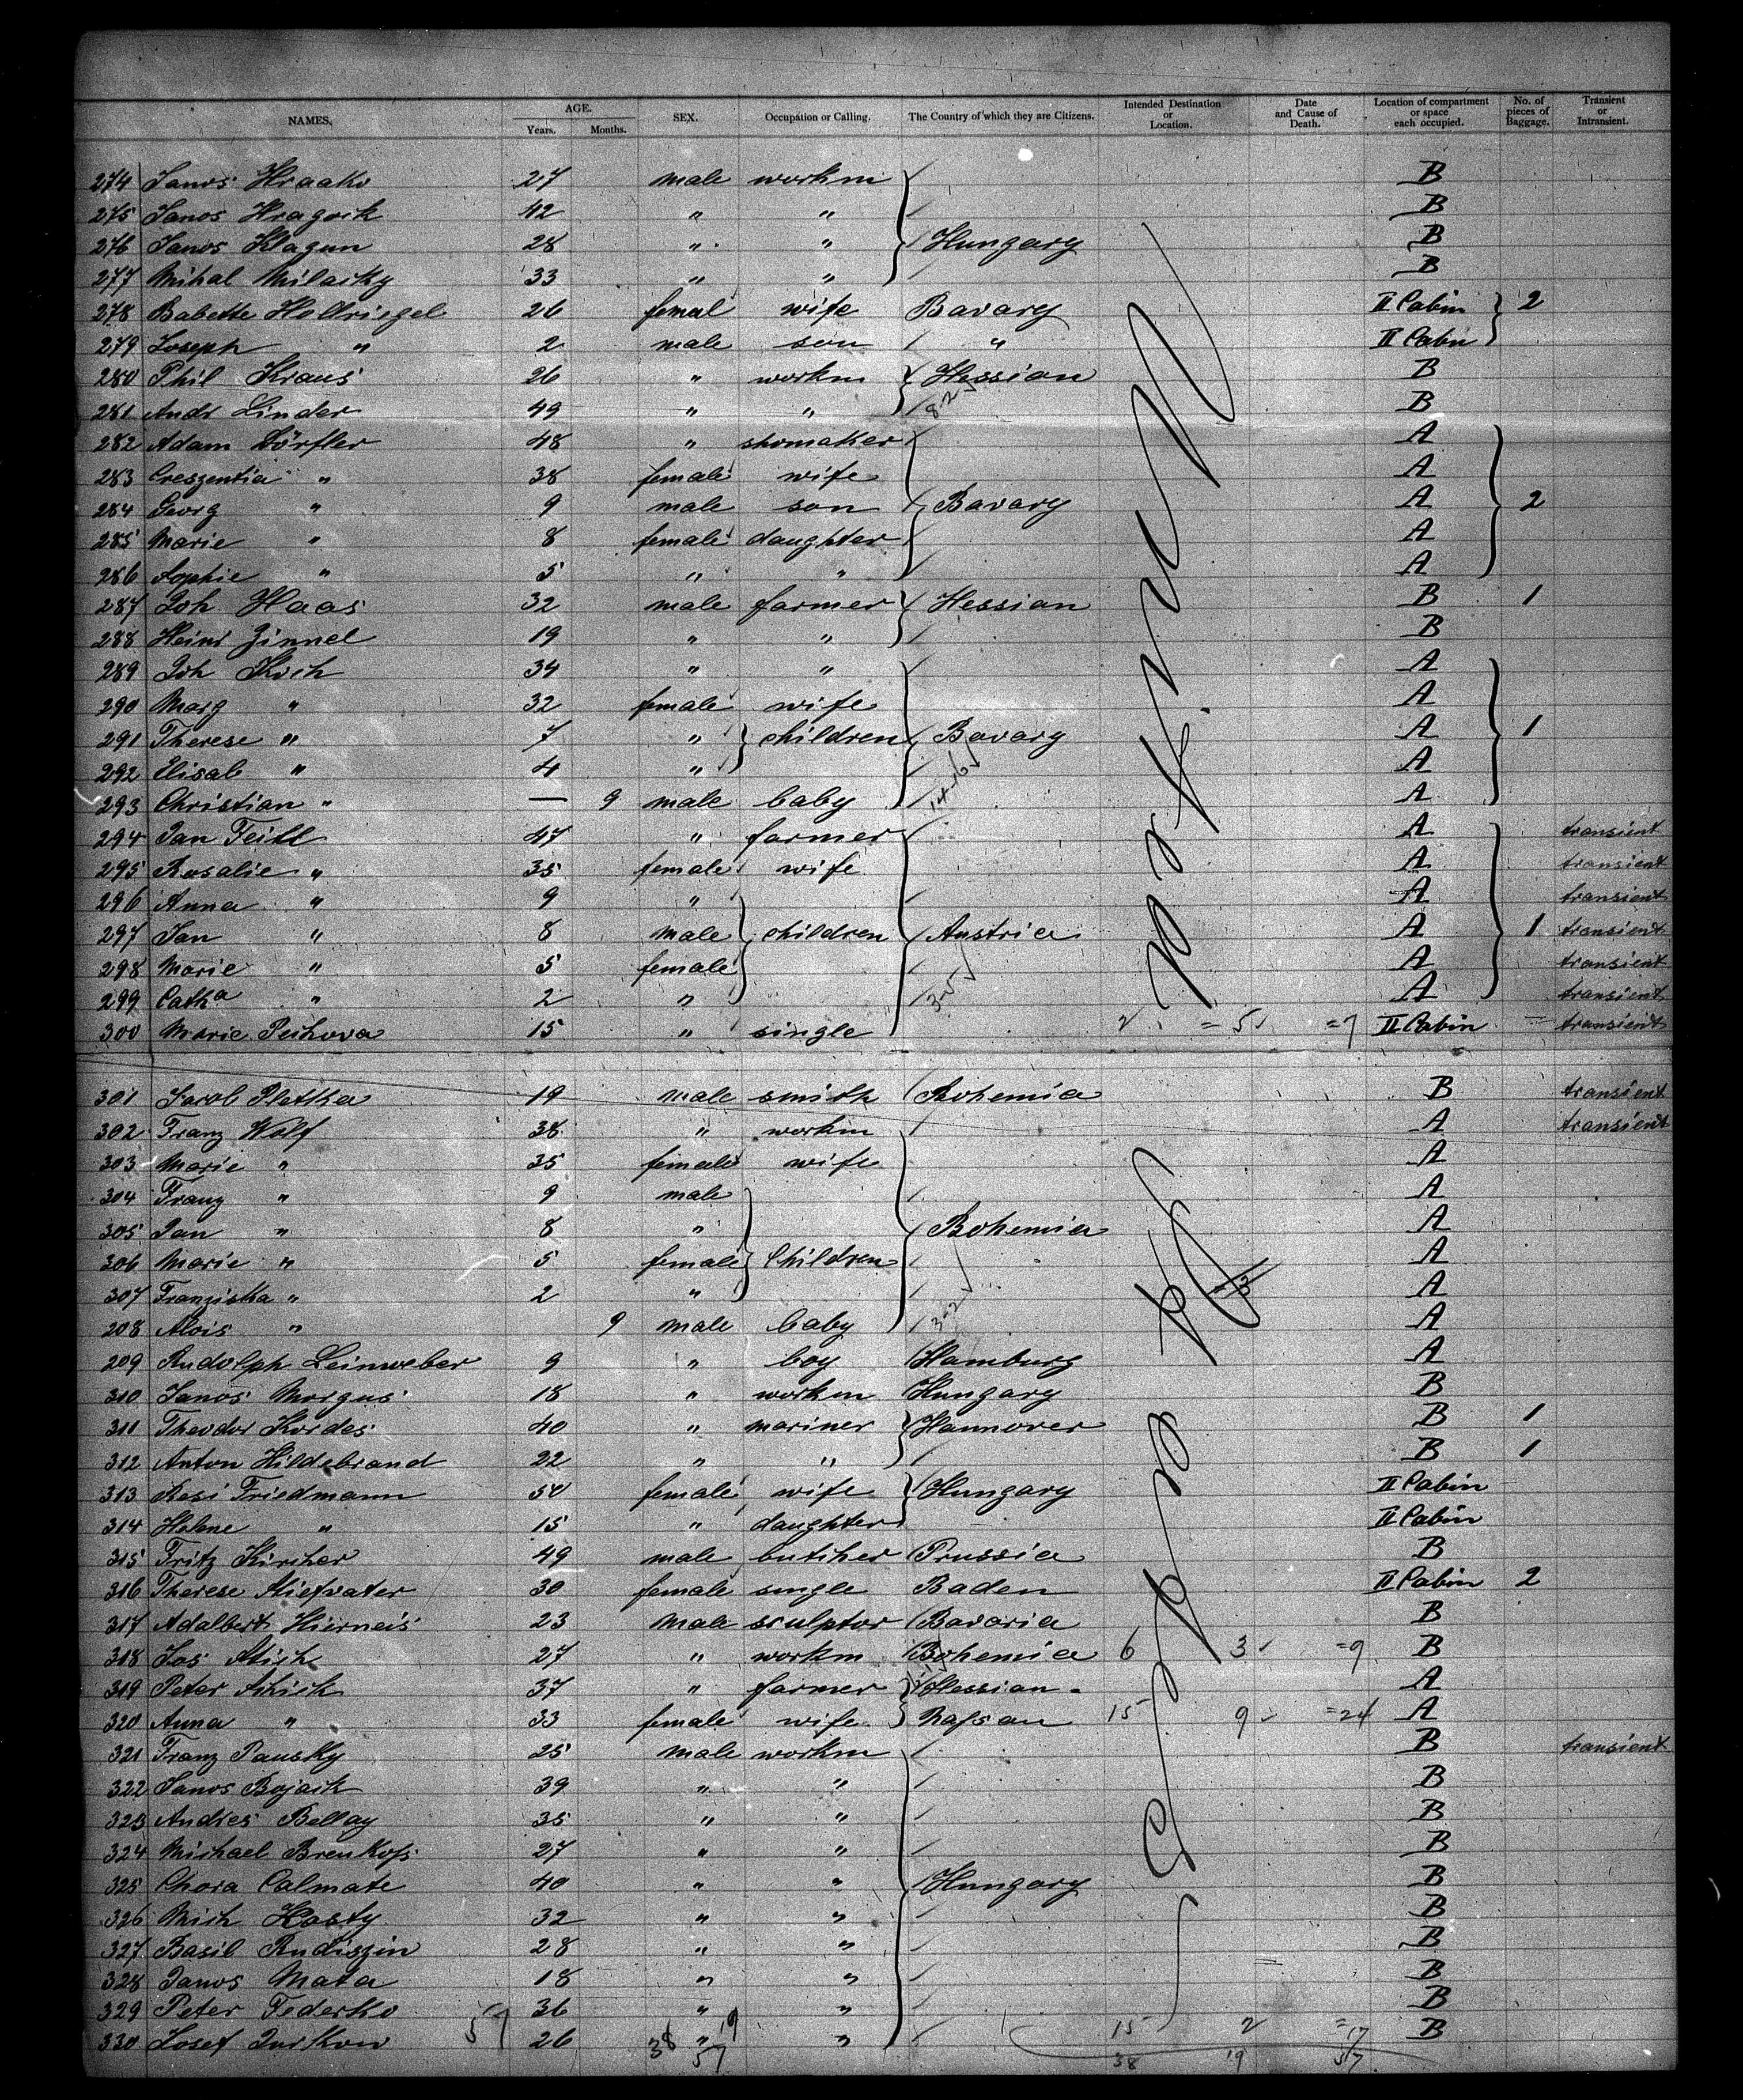 NAMES. AGE. Years. Months. SEX. Occupation or Calling. The Country of which they are Citizens. Intended Destination or Location. Date and Cause of Death. Location of compartment or space each occupied. No. of pieces of Baggage. Transient or Intransient.
274 Janos Hraako 27 male workm B
275 Janos Hragoik 42 " " B
276 Janos Klagun 28 " " Hungary B
277 Mihal Milaiky 33 " " B
278 Babette Hellriegel 26 femal wife Bavary II Cabin 2
279 Joseph " 2 male son " II Cabin
280 Phil Kraus 26 " workm Hessian B
281 Andr Linder 49 " " 8-2 B
282 Adam Dörfler 48 " shomaker A
283 Creszentia " 38 female wife A
284 Georg " 9 male son Bavary A 2
285 Marie " 8 female daughter A
286 Sophie " 5 " " A
287 Joh Haas 32 male farmer Hessian B 1
288 Heinr Zinnel 19 " " B
289 Joh Koch 34 " " A
290 Marg " 32 female wife A
291 Therese " 7 " children Bavary A 1
292 Elisab " 4 " A
293 Christian " — 9 male baby 14-16 A
294 Jan Feitl 47 " farmer A transient
295 Rosalie " 35 female wife A transient
296 Anna " 9 " A transient
297 Jan " 8 male children Austria A 1 transient
298 Marie " 5 female A transient
299 Catha " 2 " 3-5 A transient
300 Marie Peihova 15 " single 2 = 5 =7 II Cabin transient
301 Jacob Plettka 19 male smith Bohemia B transient
302 Franz Wolf 38 " workm A transient
303 Marie " 35 female wife A
304 Franz " 9 male A
305 Jan " 8 " Bohemia A
306 Marie " 5 female Children A
307 Franziska " 2 " A
208 Alois " 9 male baby 3-2 A
209 Rudolph Leinweber 9 " boy Hamburg A
310 Janos Morgus 18 " workm Hungary B
311 Theodor Kordes 40 " mariner Hannover B 1
312 Anton Hildebrand 22 " " B 1
313 Resi Friedmann 50 female wife Hungary II Cabin
314 Helene " 15 " daughter II Cabin
315 Fritz Kircher 49 male butcher Prussia B
316 Therese Stiefvater 30 female single Baden II Cabin 2
317 Adalbert Hierneis 23 male sculptor Bavaria B
318 Jos Stich 27 " workm Bohemia 6 3 =9 B
319 Peter Schick 37 " farmer Hessian A
320 Anna " 33 female wife Nassau 15 9 =24 A
321 Franz Pausky 25 male workm B transient
322 Janos Bojaik 39 " " B
323 Andres Bellay 35 " " B
324 Michael Brenkoss 27 " " B
325 Chora Calmate 40 " " Hungary B
326 Mich Hosty 32 " " B
327 Basil Rudiszin 28 " " B
328 Janos Mata 18 " " B
329 Peter Federko 36 " " B
330 Josef 57 26 38 " 19 " 15 2 =17 B
57 38 19 57